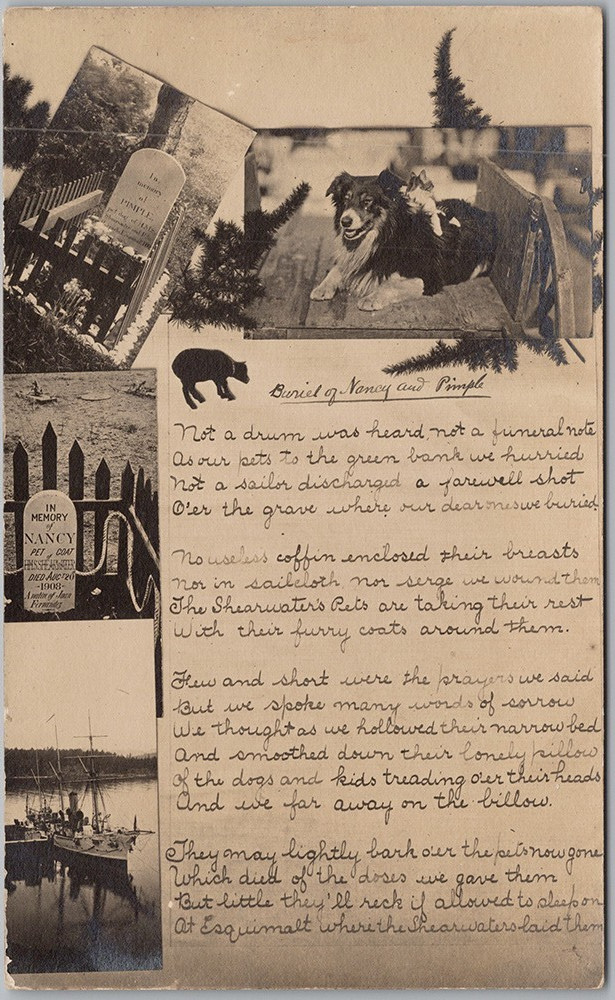 In
memory
of
PIMPLE
IN
MEMORY
of
NANCY
PET GOAT
H.M.S. SHEARWATER
DIED AUG
-1908-
A native of Juan
Fernandez
Buriel of Nancy and Pimple
Not a drum was heard, not a funeral note
As our pets to the green bank we hurried
Not a sailor discharged a farewell shot
O'er the grave where our dear ones we buried.
No useless coffin enclosed their breasts
Nor in sailcloth, nor serge we wound them
The Shearwater's Pets are taking their rest
With their furry coats around them.
Few and short were the prayers we said
But we spoke many words of sorrow
We thought as we hollowed their narrow bed
And smoothed down their lonely pillow
Of the dogs and kids treading o'er their heads
And we far away on the billow.
They may lightly bark o'er the pets now gone
Which died of the doses we gave them
But little they'll reck if allowed to sleep on
At Esquimalt where the Shearwaters laid them